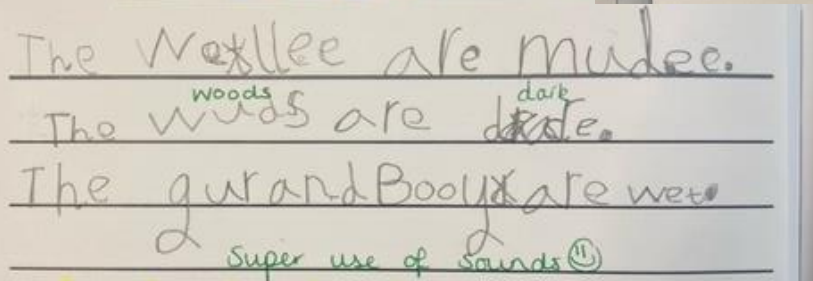 The Wexllee are mudee.
woods dark
The wuds are
The gur and Booy are wet.
Super use of sounds